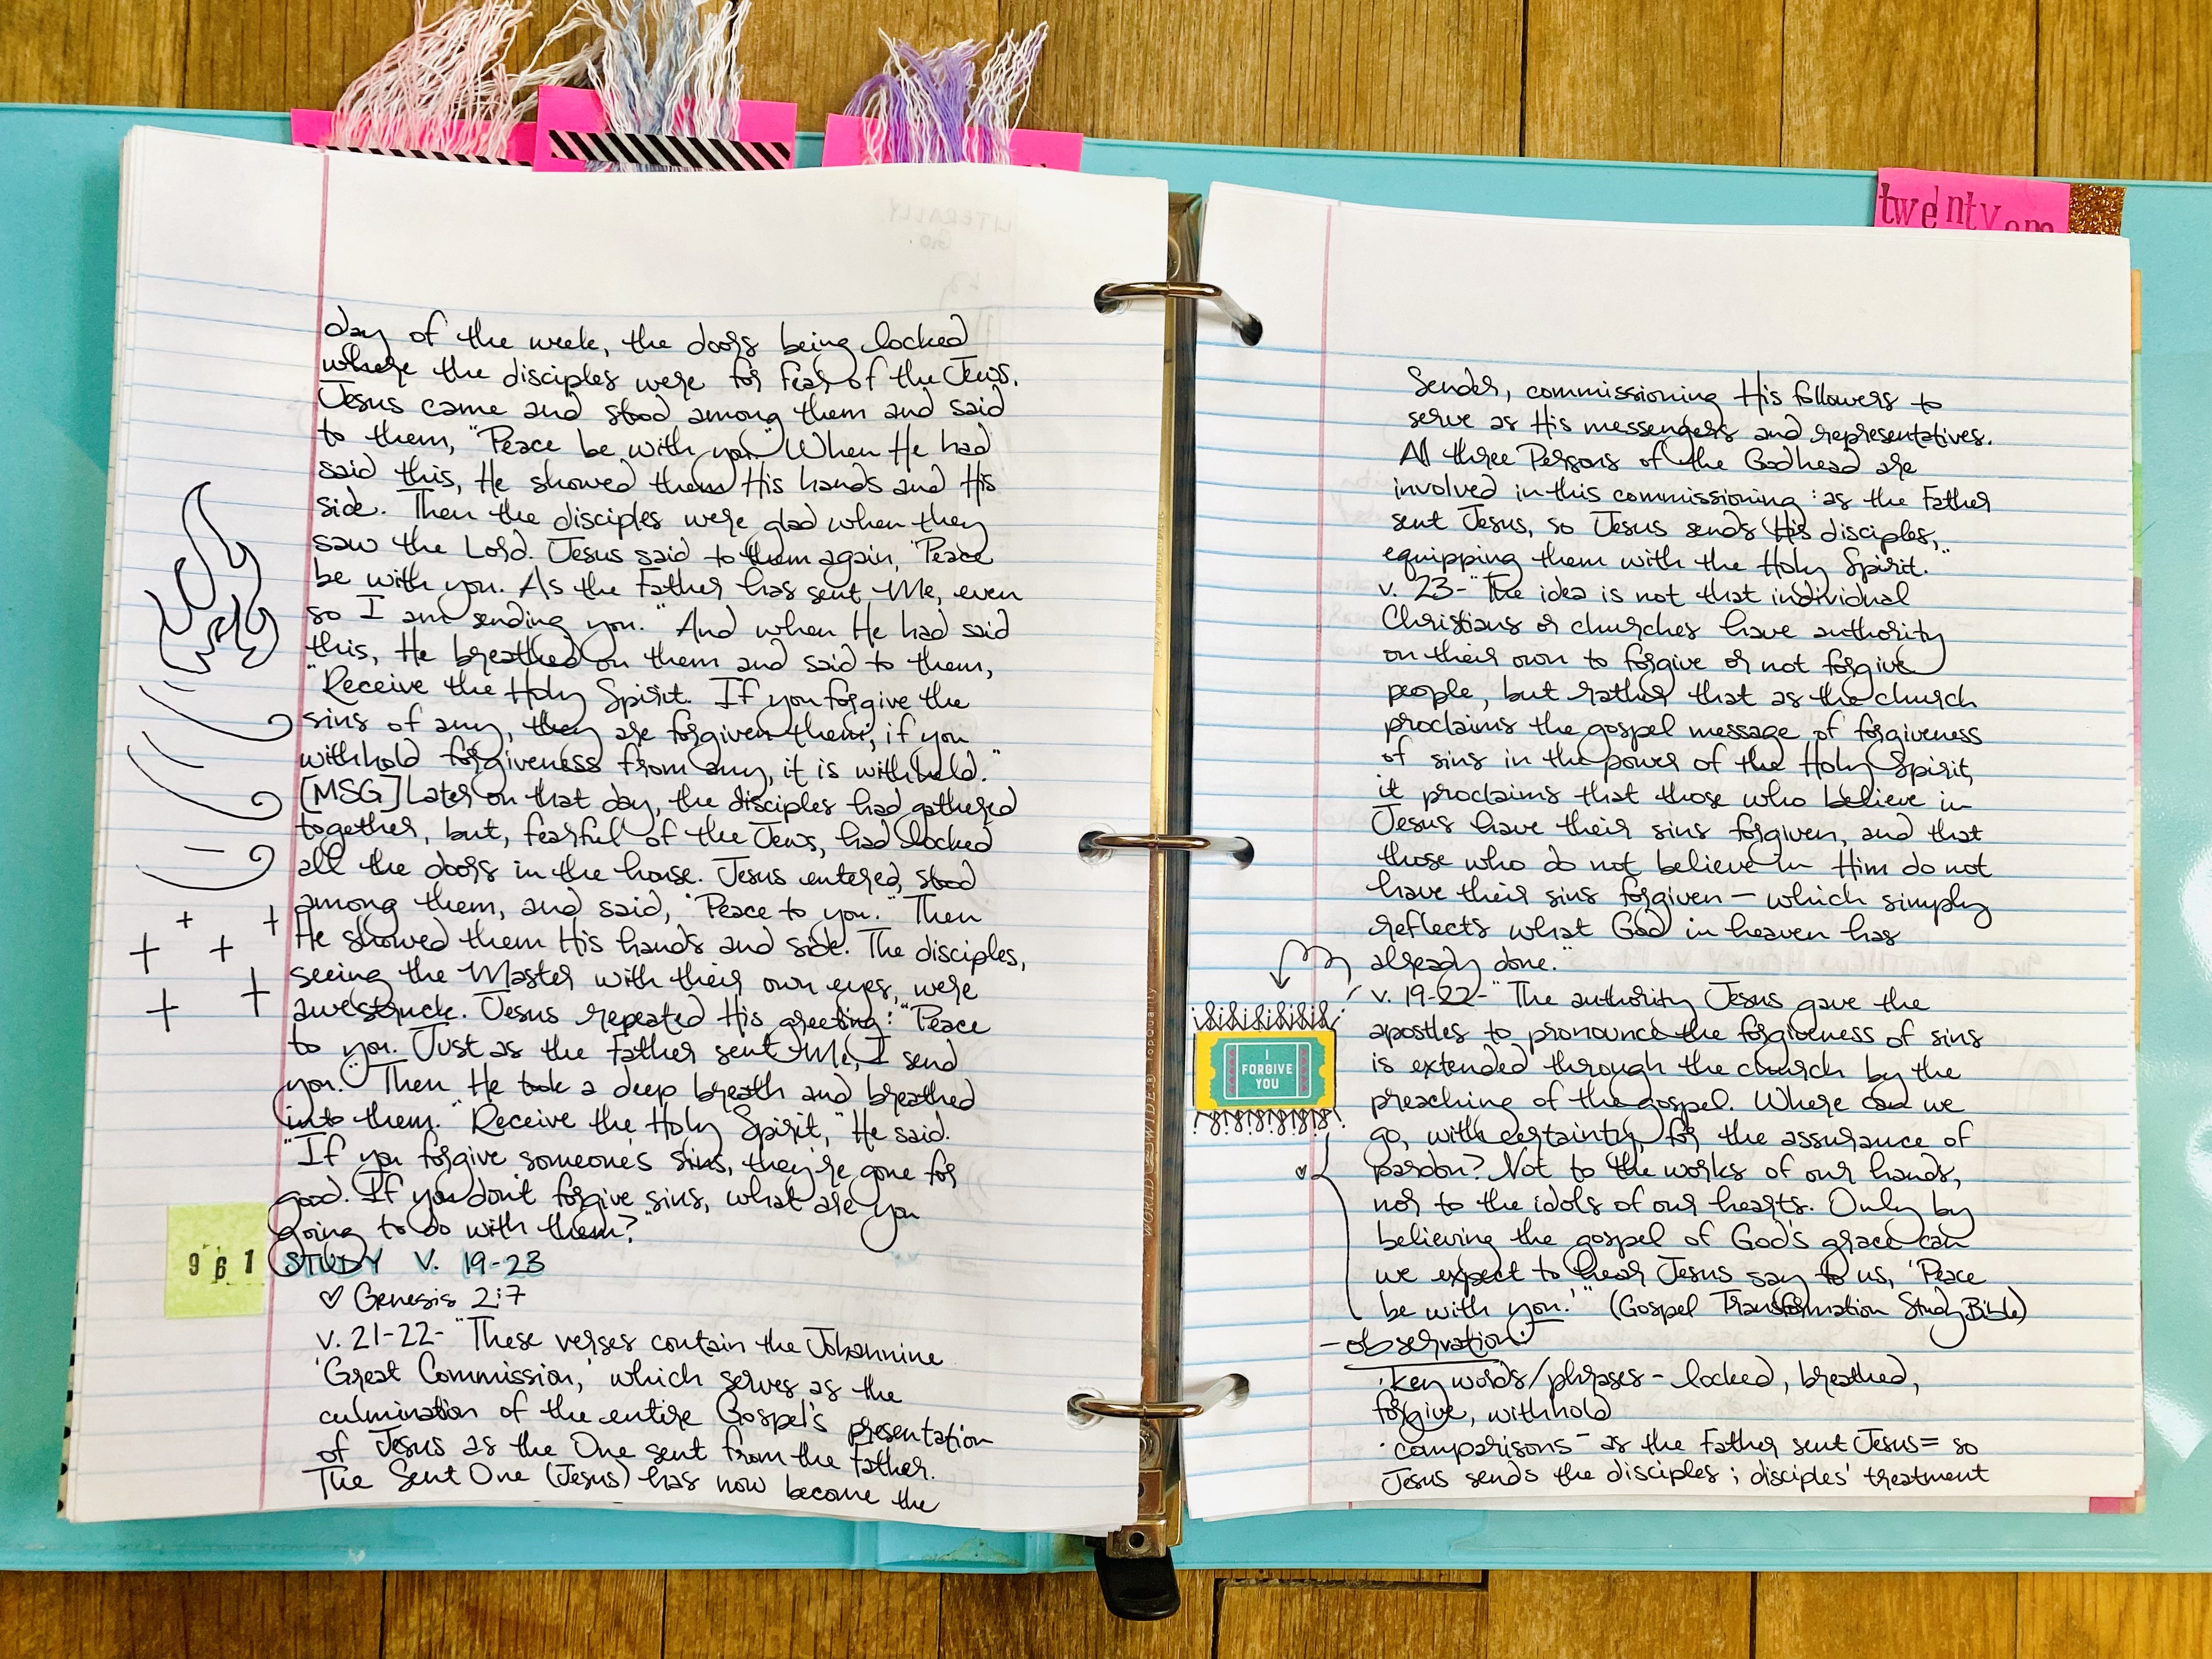 day of the week, the doors being locked
where the disciples were for fear of the Jews,
Jesus came and stood among them and said
to them, "Peace be with you." When He had
said this, He showed them His hands and His
side. Then the disciples were glad when they
saw the Lord. Jesus said to them again, "Peace
be with you. As the Father has sent Me, even
so I am sending you." And when He had said
this, He breathed on them and said to them,
"Receive the Holy Spirit. If you forgive the
sins of any, they are forgiven them; if you
withhold forgiveness from any, it is withheld."
[MSG] Later on that day, the disciples had gathered
together, but, fearful of the Jews, had locked
all the doors in the house. Jesus entered, stood
among them, and said, "Peace to you." Then
He showed them His hands and side. The disciples,
seeing the Master with their own eyes, were
awestruck. Jesus repeated His greeting: "Peace
to you. Just as the Father sent Me, I send
you." Then He took a deep breath and breathed
into them. "Receive the Holy Spirit," He said.
"If you forgive someone's sins, they're gone for
good. If you don't forgive sins, what are you
going to do with them?"
961 STUDY V. 19-23
♡ Genesis 2:7
v. 21-22- "These verses contain the Johannine
'Great Commission,' which serves as the
culmination of the entire Gospel's presentation
of Jesus as the One sent from the Father.
The Sent One (Jesus) has now become the
WORLD WIDE® TopQuality
twenty one
Sender, commissioning His followers to
serve as His messengers and representatives.
All three Persons of the Godhead are
involved in this commissioning: as the Father
sent Jesus, so Jesus sends His disciples,
equipping them with the Holy Spirit."
v. 23- "The idea is not that individual
Christians or churches have authority
on their own to forgive or not forgive
people, but rather that as the church
proclaims the gospel message of forgiveness
of sins in the power of the Holy Spirit,
it proclaims that those who believe in
Jesus have their sins forgiven, and that
those who do not believe in Him do not
have their sins forgiven — which simply
reflects what God in heaven has
already done."
v. 19-22- "The authority Jesus gave the
apostles to pronounce the forgiveness of sins
is extended through the church by the
preaching of the gospel. Where can we
go, with certainty, for the assurance of
pardon? Not to the works of our hands,
nor to the idols of our hearts. Only by
believing the gospel of God's grace can
we expect to hear Jesus say to us, 'Peace
be with you.'" (Gospel Transformation Study Bible)
I
FORGIVE
YOU
- observation:
· key words/phrases - locked, breathed,
forgive, withhold
· comparisons - as the Father sent Jesus = so
Jesus sends the disciples; disciples' treatment